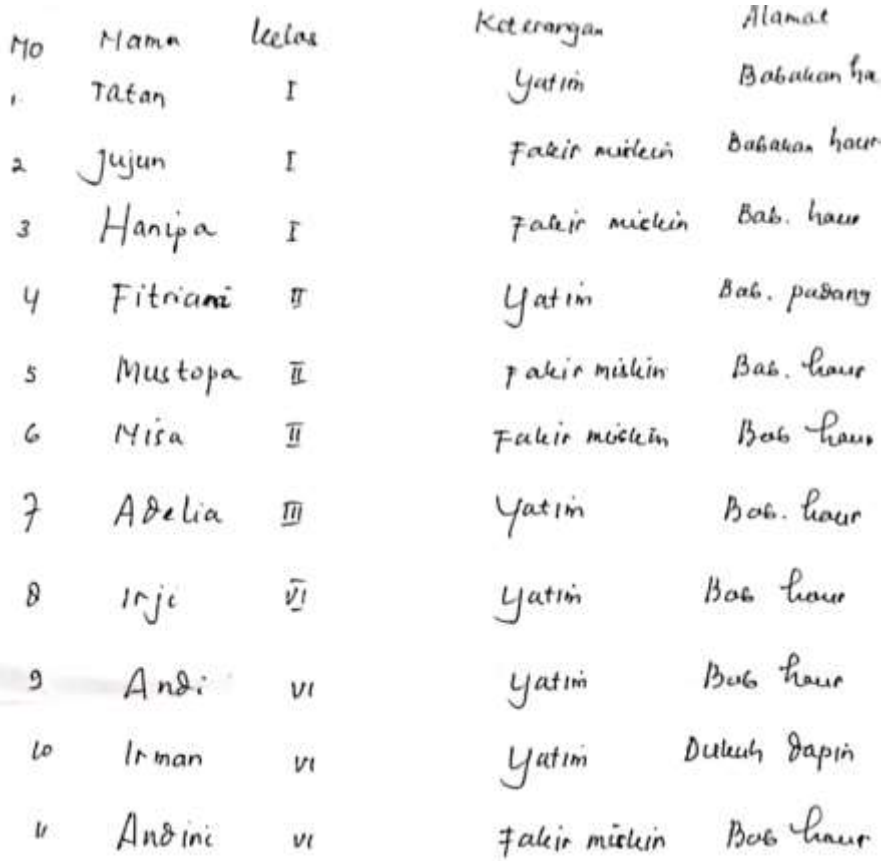 No Nama Kelas Keterangan Alamat
1. Tatan I Yatim Babakan ha
2 Jujun I Fakir miskin Babakan haur
3 Hanipa I Fakir miskin Bab. haur
4 Fitriani II Yatim Bab. padang
5 Mustopa II Fakir miskin Bab. haur
6 Nisa II Fakir miskin Bab haur
7 Adelia III Yatim Bab. haur
8 Irji VI Yatim Bab haur
9 Andi VI Yatim Bab haur
10 Irman VI Yatim Dukuh dapin
11 Andini VI Fakir miskin Bab haur